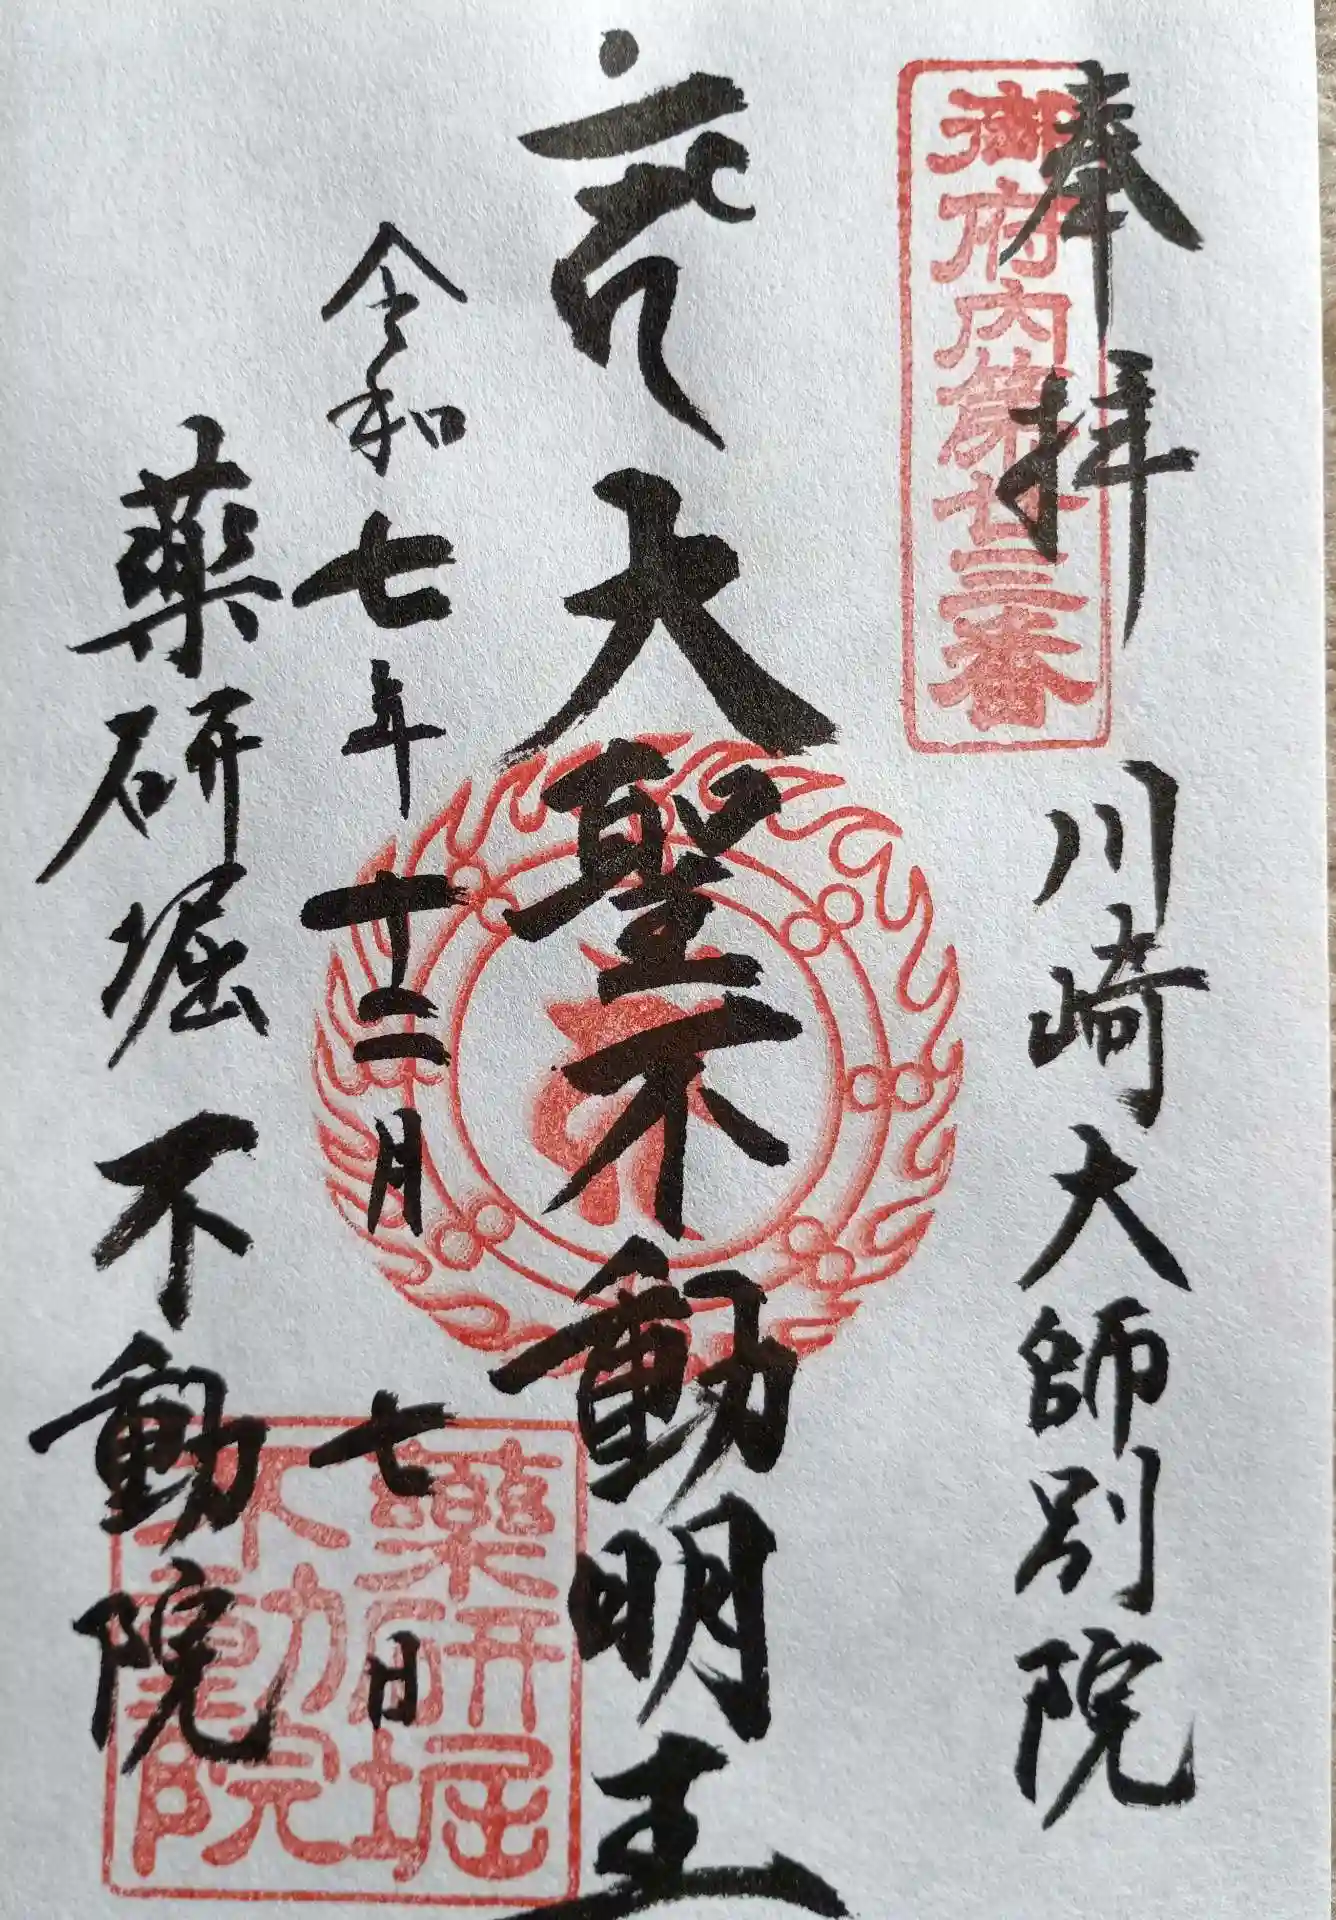 奉拝
川崎大師別院
御府内第廿三番
大聖不動明王
令和七年十二月七日
薬研堀不動院
薬研堀
不動院